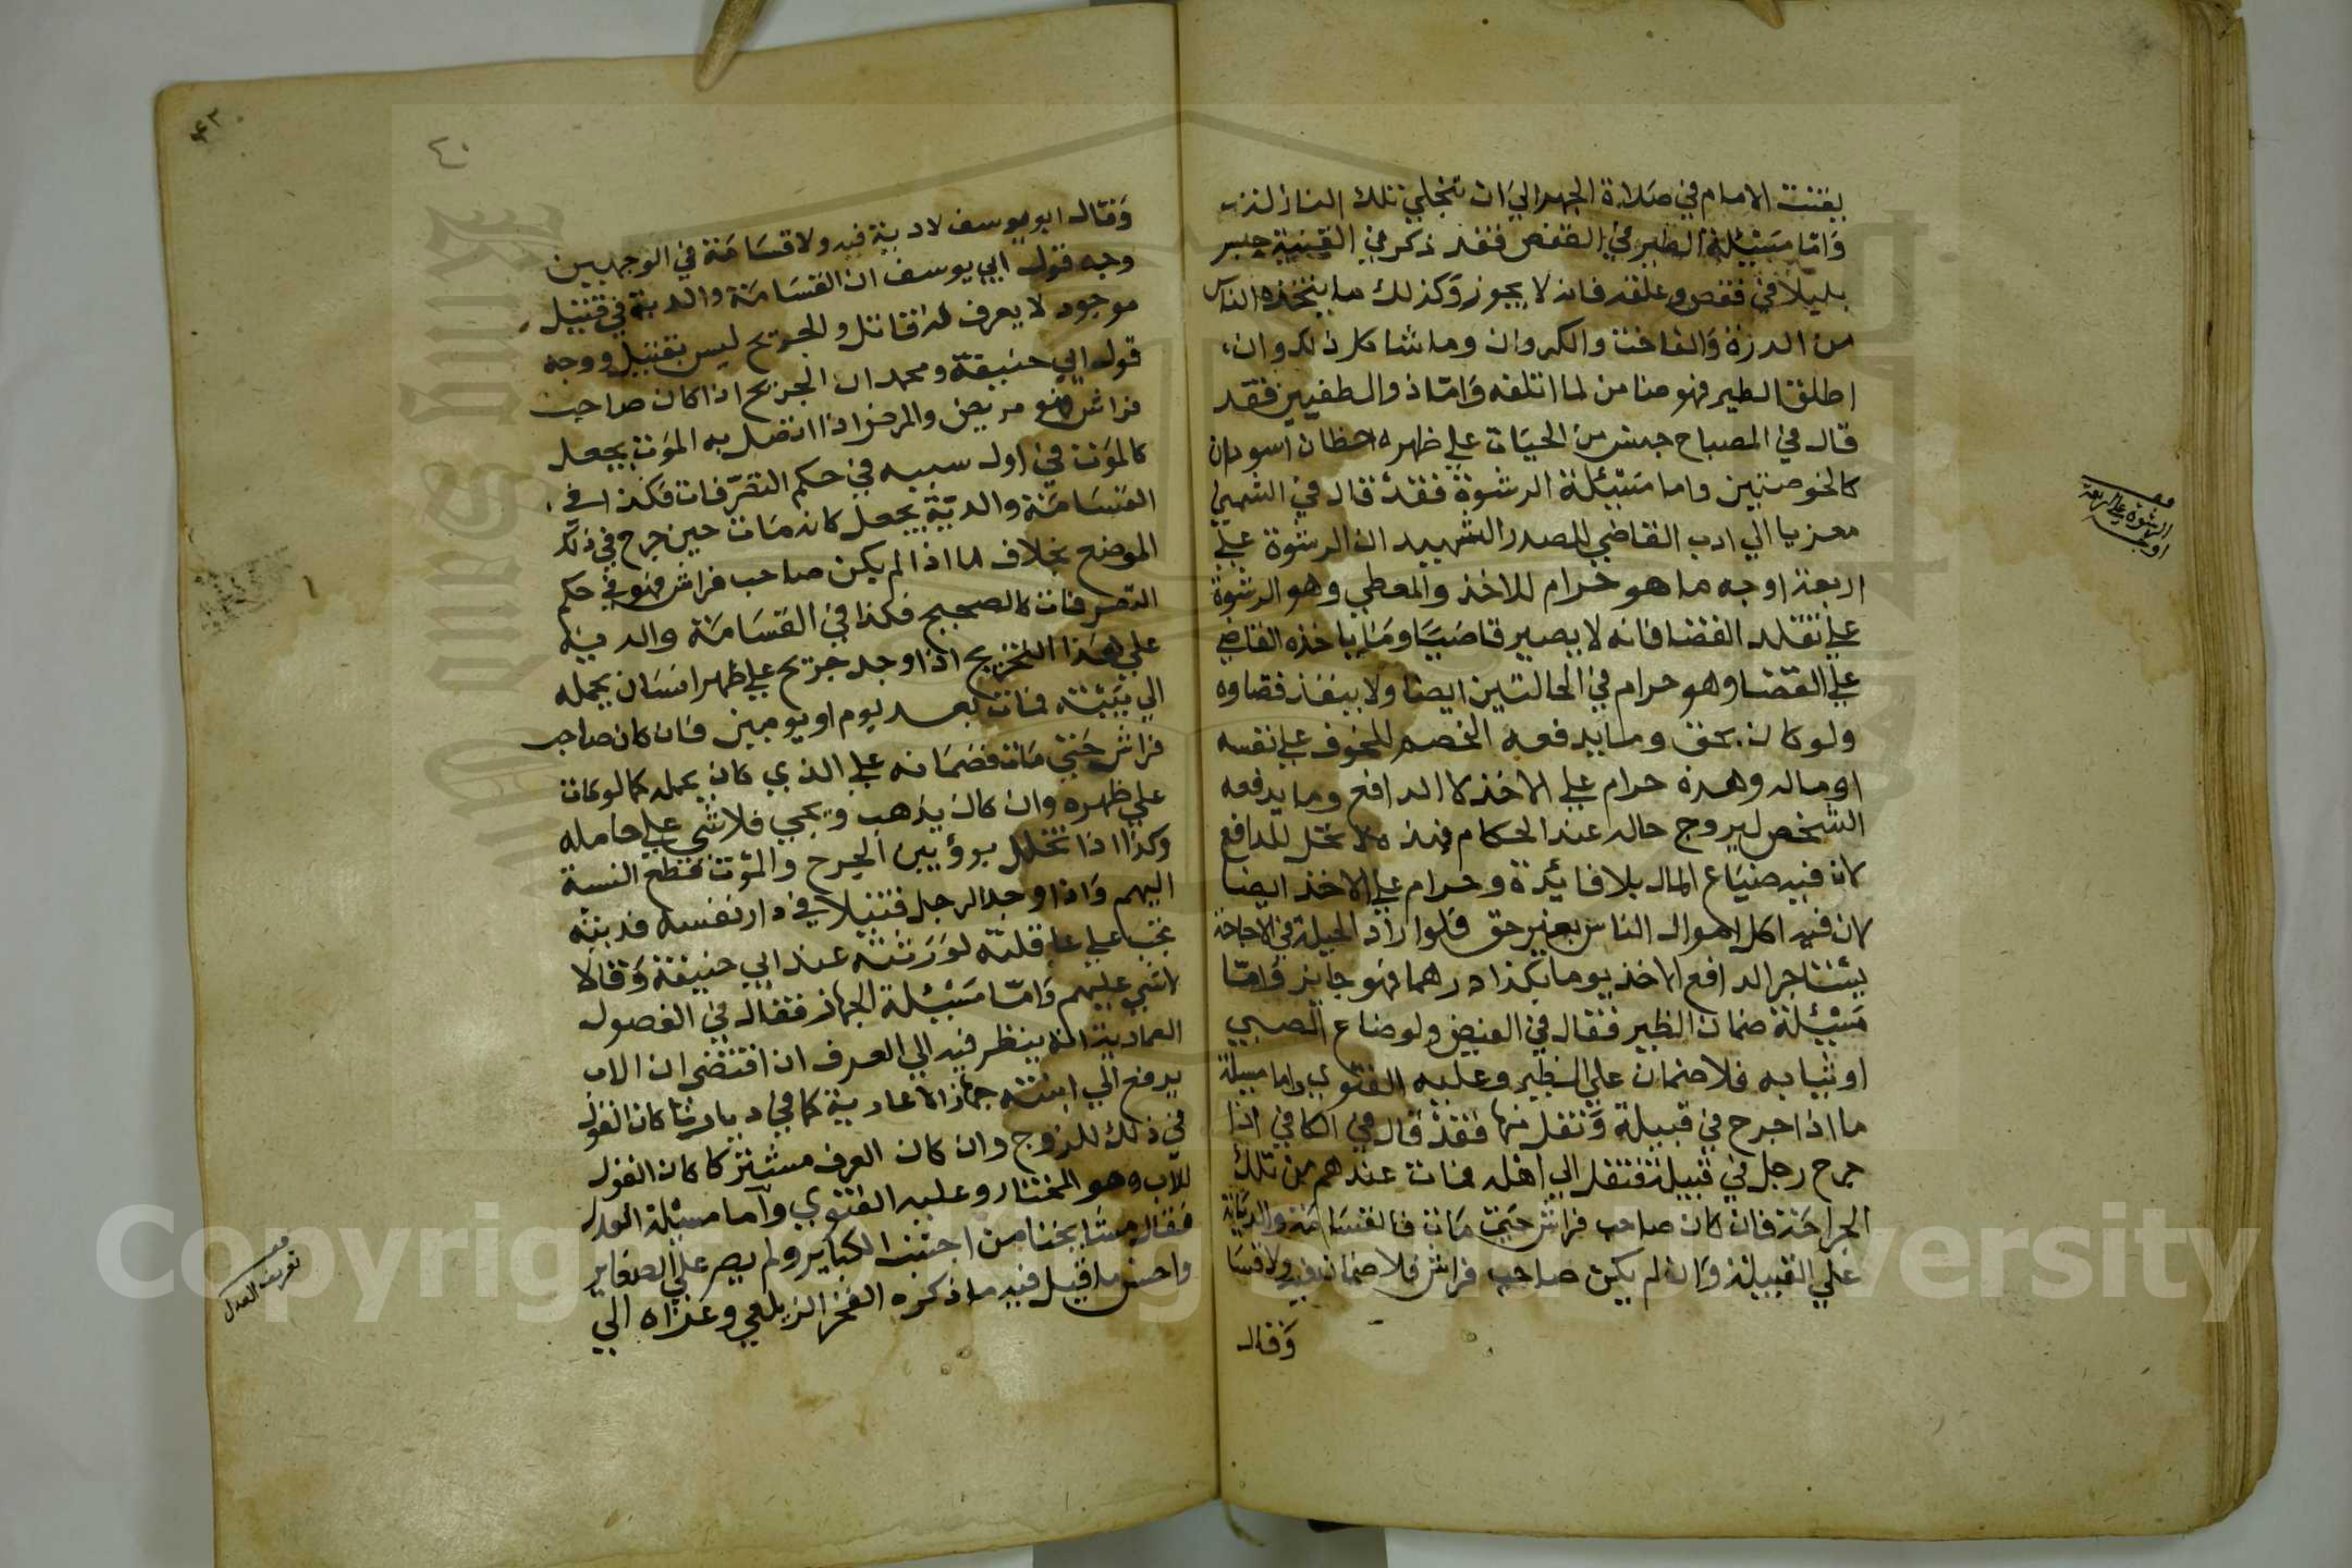 يقنت الامام في صلاة الجهر الي ان تنجلي تلك النازلة
وَامّا مسَئلة الطير في القفص فقد ذكر في القنية حبس
بلبلا في قفص وعلقه فانه لا يجوز وَكذلك ما يتخذه الناس
من الدرة وَالفاخت والكروان وما شاكل ذلك وان
اطلق الطير فهو ضامن لما اتلفه وَامّا ذو الطفيين فقد
قال في المصباح جنس من الحيات علي ظهره خطان اسودان
كالخوصتين واما مسَئلة الرشوة فقدْ قال في الشمني
معزيا الي ادب القاضي للصدر الشهيد ان الرشوة علي
اربعة اوجه ما هو حرام للاخذ والمعطي وهو الرشوة
علي تقلد القضا فانه لا يصير قاضيًا وما ياخذه القاضي
علي القضا وهو حرام في الحالتين ايضا ولا ينفذ قضاوه
ولو كان بحق وما يدفعه الخصم للخوف علي نفسه
او ماله وهذه حرام علي الاخذ لا الدافع وما يدفعه
الشخص ليروج حاله عند الحكام فهذه لا تحل للدافع
لانه فيه ضياع المال بلا فائدة وحرام علي الاخذ ايضا
لان فيه اكل اموال الناس بغير حق فلو اراد الحيلة في الاباحة
يستاجر الدافع الاخذ يوما بكذا درهما فهو جايز وَامّا
مسَئلة ضمان الظير فقال في الفيض ولو ضاع الصبي
او ثيابه فلا ضمان علي الظير وعليه الفتوي واما مسئلة
ما اذا جرح في قبيلة وَنقل منها فقدْ قال في الكافي اذا
جرح رجل في قبيلة فنقل الي اهله فمات عندهم من تلك
الجراحَة فان كان صاحب فراش حَتي مَات فالقسَامَة والديَة
علي القبيلة وَان لم يكن صاحب فراش فلا ضمان فيه ولا قسا
وَقال
الرشوة علي اربعة
اوجه
٤٠
٤٢
وَقال ابو يوسف لا دية فيه ولا قسَامَة في الوجهين
وجه قول ابي يوسف ان القسَامَة والدية في قتيل
موجود لا يعرف له قاتل والجريح ليس بقتيل ووجه
قول ابي حنيفة ومحمد ان الجريح اذا كان صاحب
فراش فهو مريض والمرض اذا اتصل به الموت يجعل
كالموَت في اول سببه في حكم التصرّفات فكذا في
القسَامَة والديَة يجعل كانه مَات حين جرح في ذلك
الموضع بخلاف ما اذا لم يكن صاحب فراش فهو في حكم
التصرفات كالصحيح فكذا في القسَامَة والدية
علي هذا التخريج اذا وجد جريح علي ظهر انسَان يحمله
الي بَيته فمات بعد يوم او يومين فان كان صاحب
فراش حَتي مَات فضمَانه علي الذي كان يحمله كما لو مات
علي ظهره وان كان يذهب ويجي فلا شي علي حامله
وكذا اذا تخلل بروٌ بين الجرح والموت فقطع النسبة
اليهم وَاذا وجد الرجل قتيلا في دار نفسه فديته
تجب علي عاقلته لوَرَثته عند ابي حنيفة وَقالا
لا شي عليهم وَامّا مسَئلة الجهاز فقال في الفصول
العمادية انه ينظر فيه الي العرف ان اقتضي ان الاب
يدفع الي ابنته جهازا لا عارية كما في ديارنا كان القول
في ذلك للزوج وان كان العرف مشتركا كان القول
للاب وهو المختار وعليه الفتوي وَاما مسئلة العدل
فقال مشَايخنا من اجتنب الكباير ولم يصر علي الصغاير
واحسن ما قيل فيه ما ذكره الفخر الزيلعي وعزاه الي
تعريف العدل
Copyright King Saud University